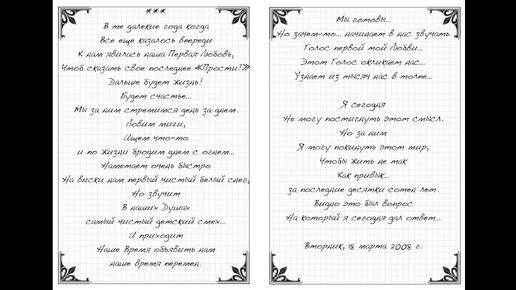 ***
В те далекие года когда
Все еще казалось впереди
К нам явилась наша Первая Любовь,
Чтоб сказать свое последнее «Прости!»
Дальше будет Жизнь!
Будет счастье...
Мы за ним стремимся день за днем.
Ловим миги,
Ищем что-то
и по Жизни бродим днем с огнем...
Наметает очень быстро
На виски нам первый чистый белый снег,
Но звучит
В наших Душах
самый чистый детский смех...
И приходит
Наше Время объявить нам
наше время перемен.
Мы готовы...
Но зачем-то... начинает в нас звучать
Голос первой той Любви...
Этот Голос окликает нас...
Узнает из тысяч нас в толпе...
Я сегодня
Не могу постигнуть этот смысл.
Но за ним
Я могу покинуть этот мир,
Чтобы жить не так
Как привык...
за последние десятки сотен лет.
Видно это был вопрос
На который я сегодня дал ответ...
Вторник, 18 марта 2008 г.